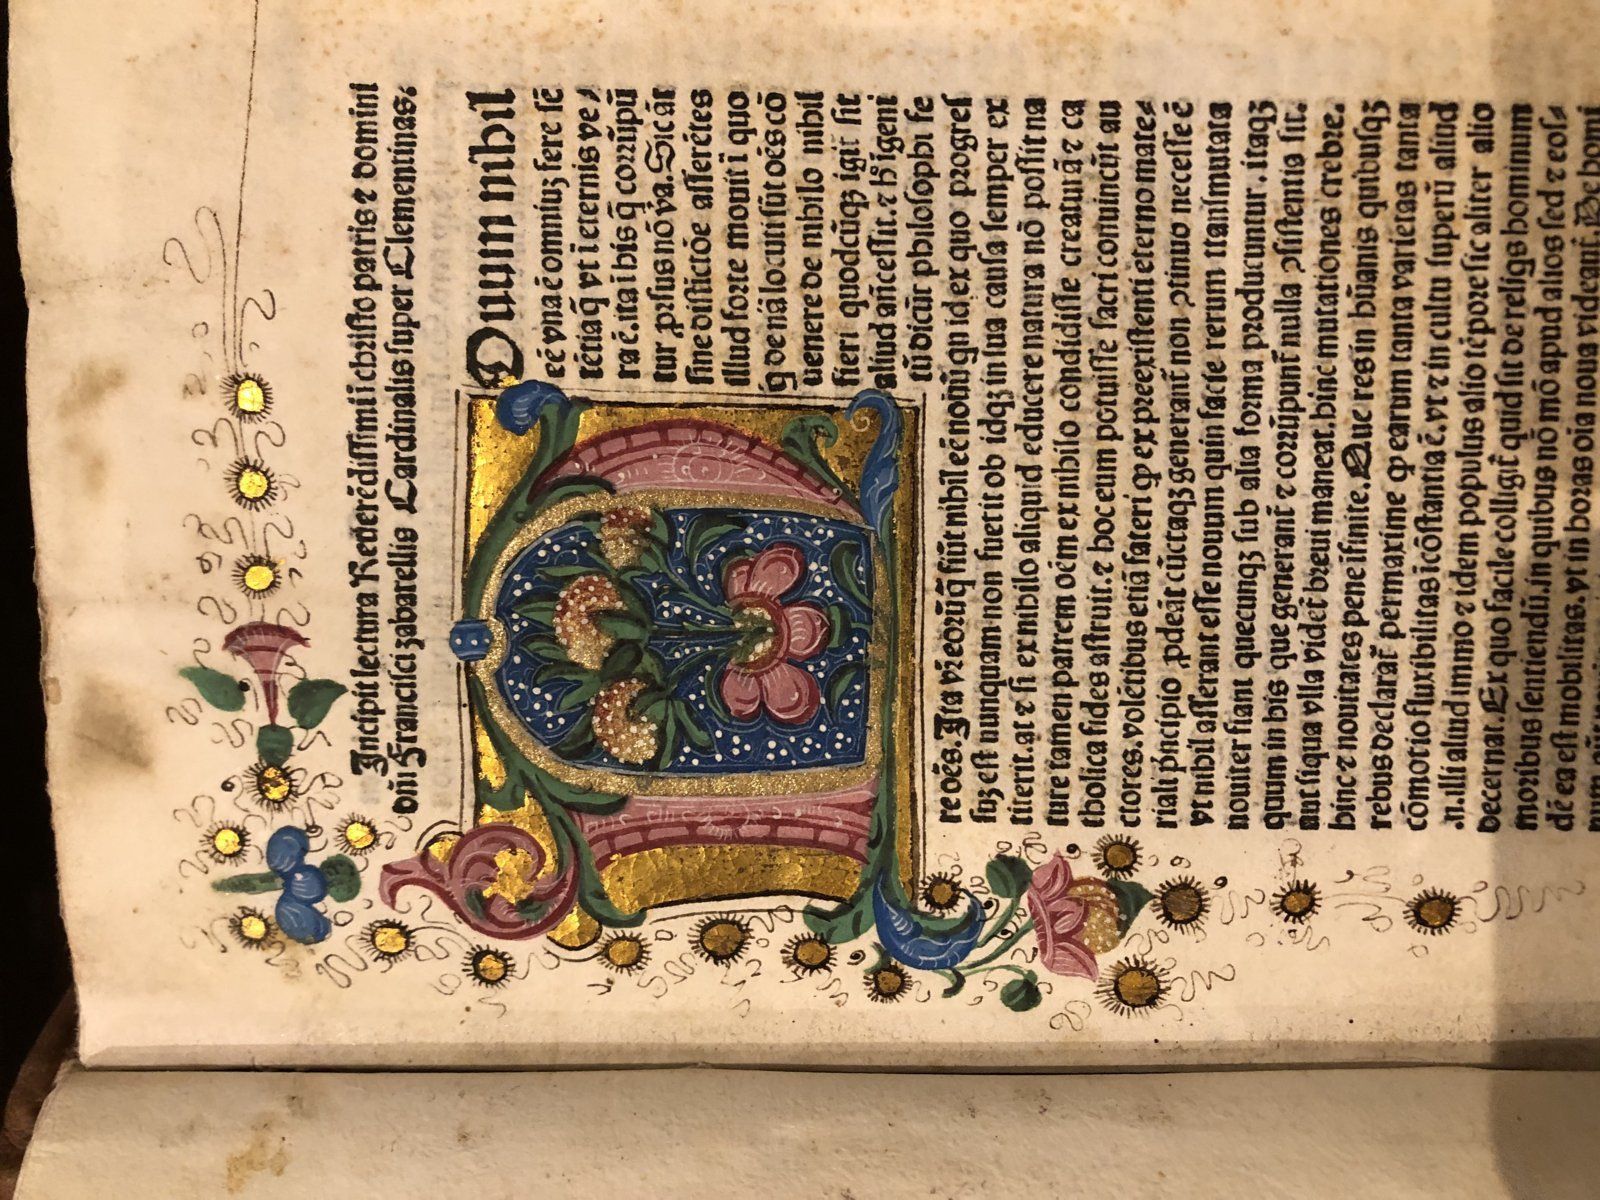 Incipit lectura Reuerēdissimi i christo patris ⁊ domini
dñi Francisci zabarellis Cardinalis super Clementinas:
Quum nihil
eē vnaē omniuȝ fere sē
tētiaq̄ vt i eternis ve⸗
ra ē. ita i his q̄ corrūpū
tur ꝓrsus nō va. Sic āt
sine distictōe asserētes
illud forte mouit ī quo
nālocuti sūt oēs cō
uenere de nihilo nihil
fieri quodcūqꝫ igit̄ sit
aliud añcessit. ⁊ igeni
tū dicūt philosophi se
re oēs. Ita
suȝ est nunquam non fuerit ob idqꝫ in sua causa semper ex
titerit. at ⁊ si ex nihilo aliquid educere natura nō possit na
ture tamen patrem oēm ex nihilo condidisse creaturā ⁊ ca
tholica fides astruit. ⁊ hoc eum potuisse sacri conuincūt au
ctores. volētibus etiā fateri ꝙ ex preexistenti eterno mate⸗
riali pñcipio ꝓdeāt cūctaqꝫ generant̄ non ↄtinuo necesse ē
vt nihil asserant esse nouum quin facie rerum transmutata
nouiter fiant quecunqꝫ sub alia forma producuntur. itaqꝫ
quum in his que generant̄ ⁊ corrūpunt̄ nulla ↄsistentia sit.
aut siqua vlla videt̄ breui maneat. hinc mutationes crebre.
hinc ⁊ nouitates pene ifinite. Que res in hūanis quibusqꝫ
rebus declarat̄ permaxime ꝙ earum tanta varietas tanta
cōmotio fluxibilitas icōstantia ē. vt ⁊ in cultu superū aliud
.n. illi aliud immo ⁊ idem populus alio tēpore sic aliter alio
decernat. Ex quo facile colligit̄ quid sit de religs hominum
moribus sentiendū. in quibus nō mō apud alios sed ⁊ eos⸗
dē ea est mobilitas. vt in horas oīa noua videant̄. De homi